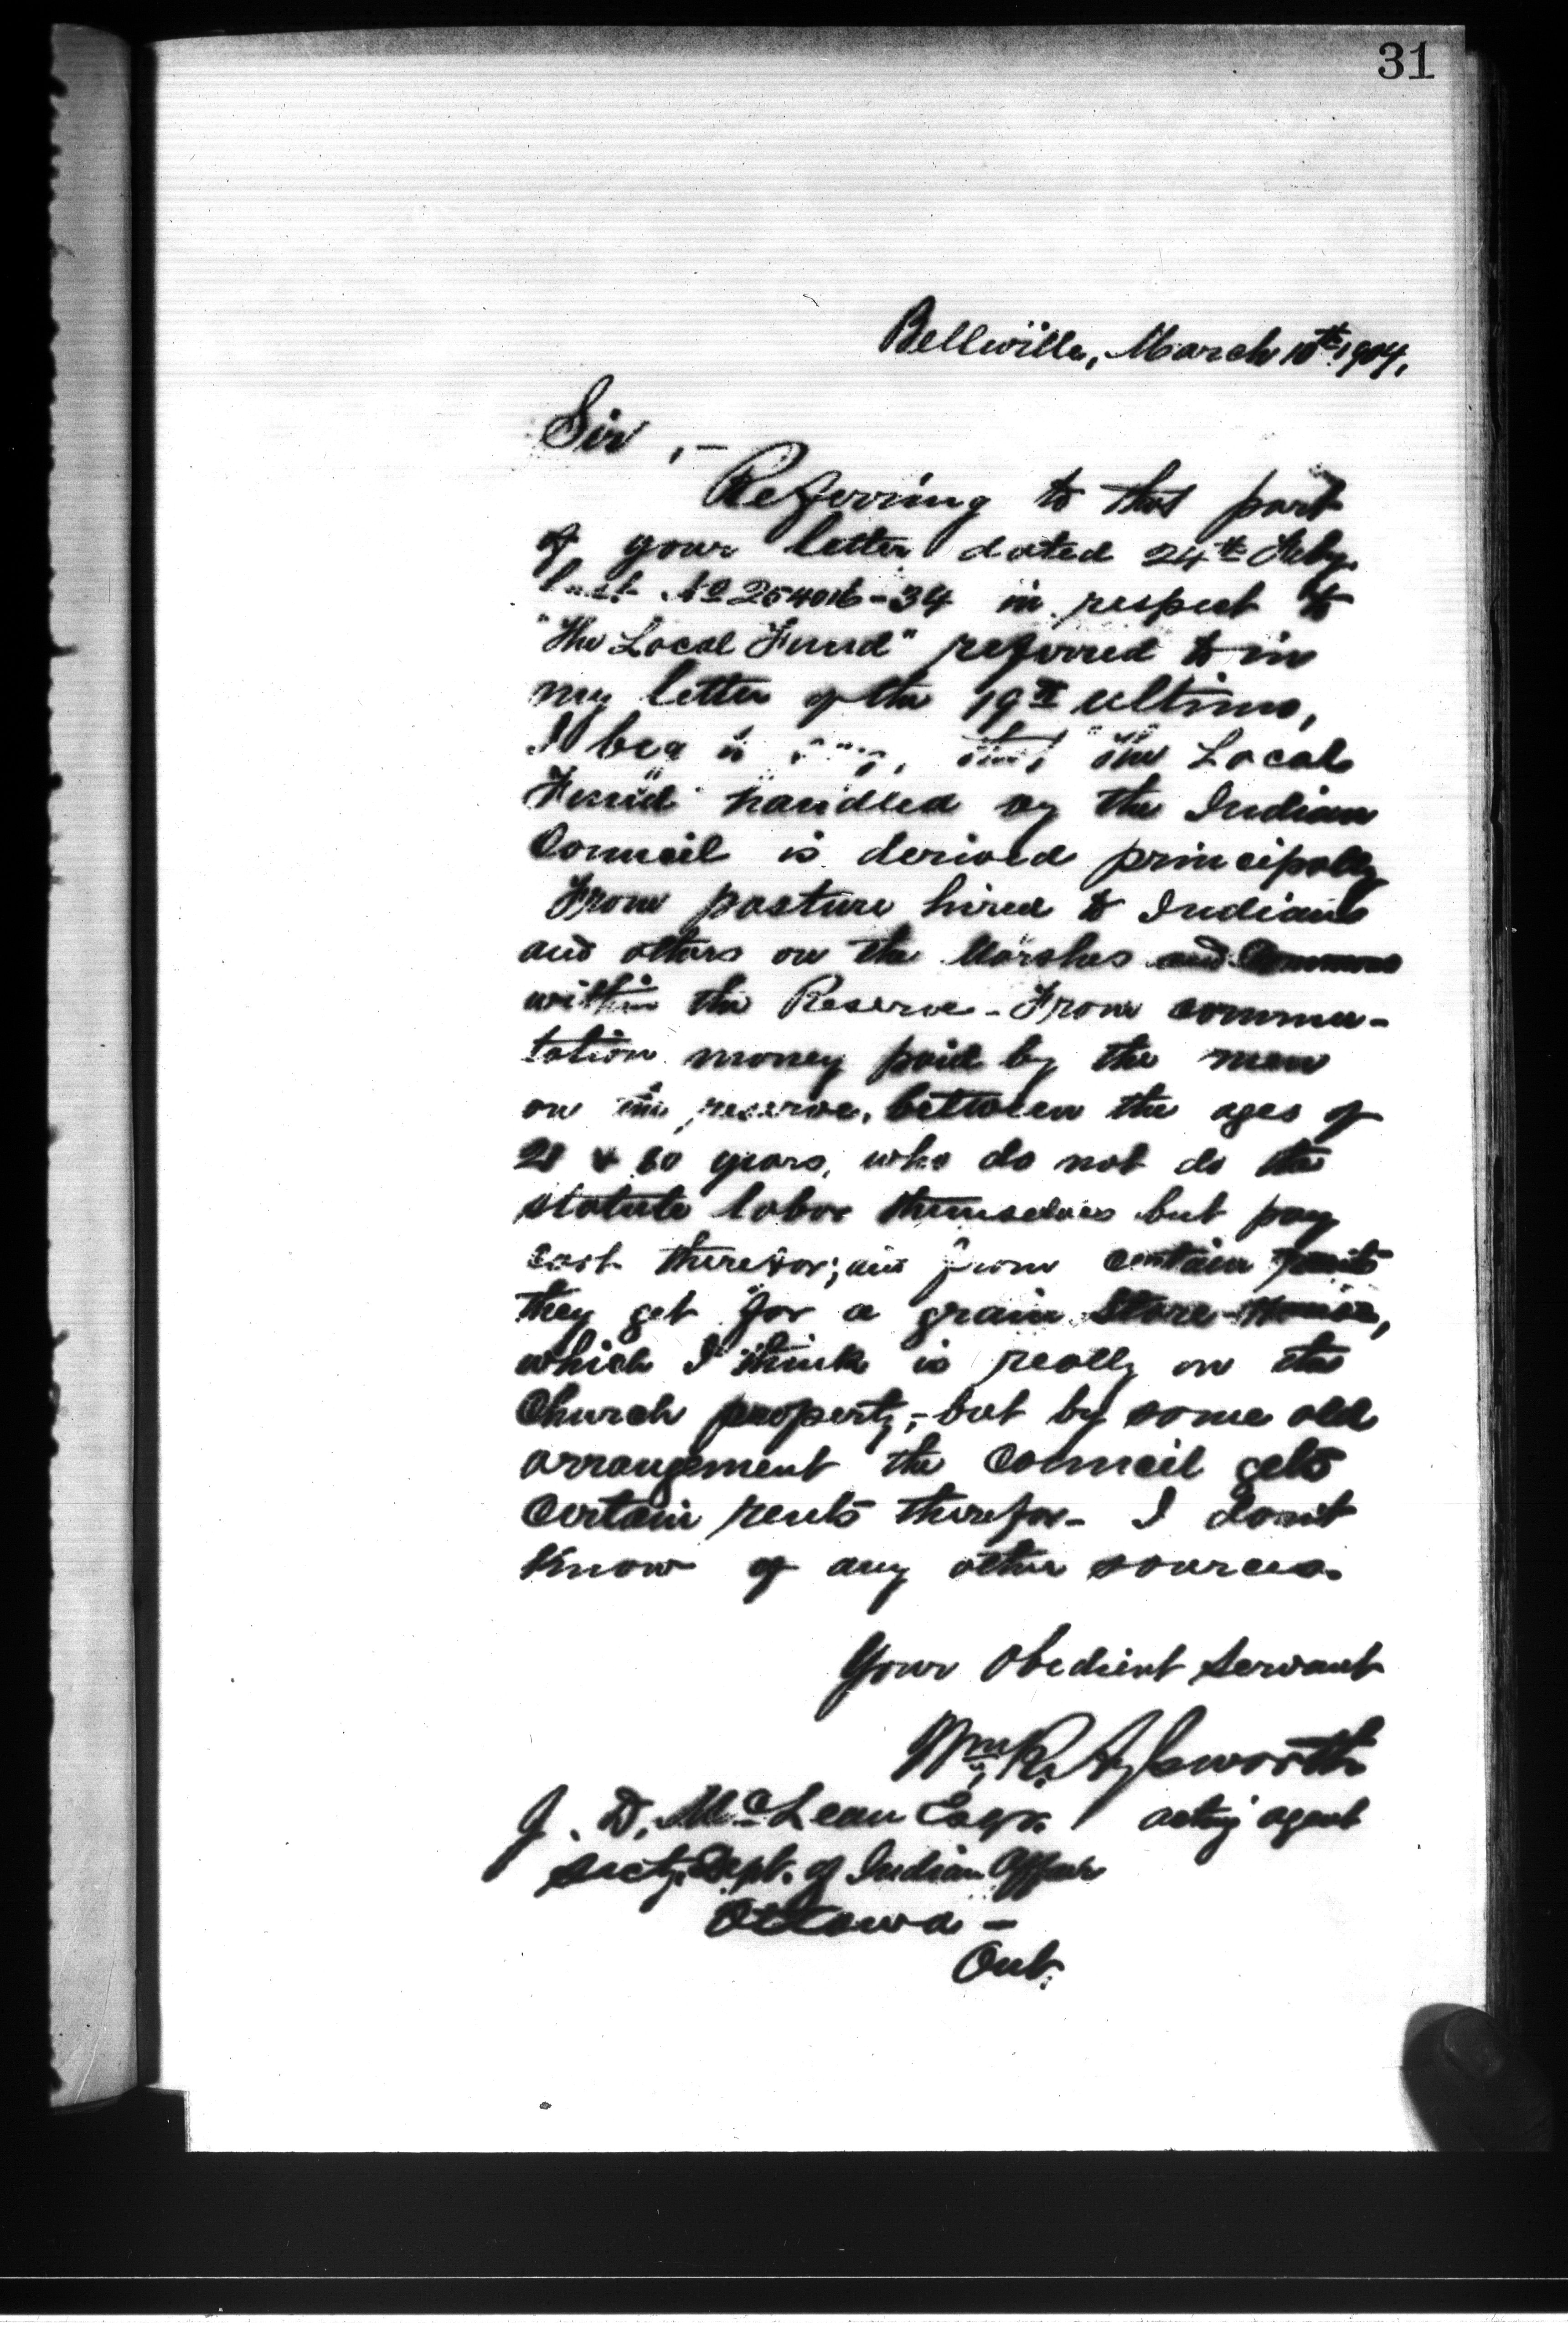 31
Belleville, March 10th 1904,
Sir,-
Referring to that part
of your letter dated 24th Feby.
last No 254016-34 in respect to
"The Local Fund" referred to in
my letter of the 19th ultimo,
I beg to that "The Local
Fund" handled by the Indian
Council is derived principally
From pasture hired to Indians
and others on the Marshes and Commons
within the Reserve - From commu-
tation money paid by the men
on the reserve, between the ages of
21 & 60 years, who do not do the
statute labor themselves but pay
cash therefor; and from certain rents
they get for a grain Store-House,
which I think is really on the
Church property,- but by some old
arrangement the Council gets
Certain rents therefor- I don't
know of any other sources.
Your Obedient Servant
Wm. R. Aylsworth
J. D. McLean Esqr. acting agent
Secty. Dept. of Indian Affair
Ottawa -
Ont.